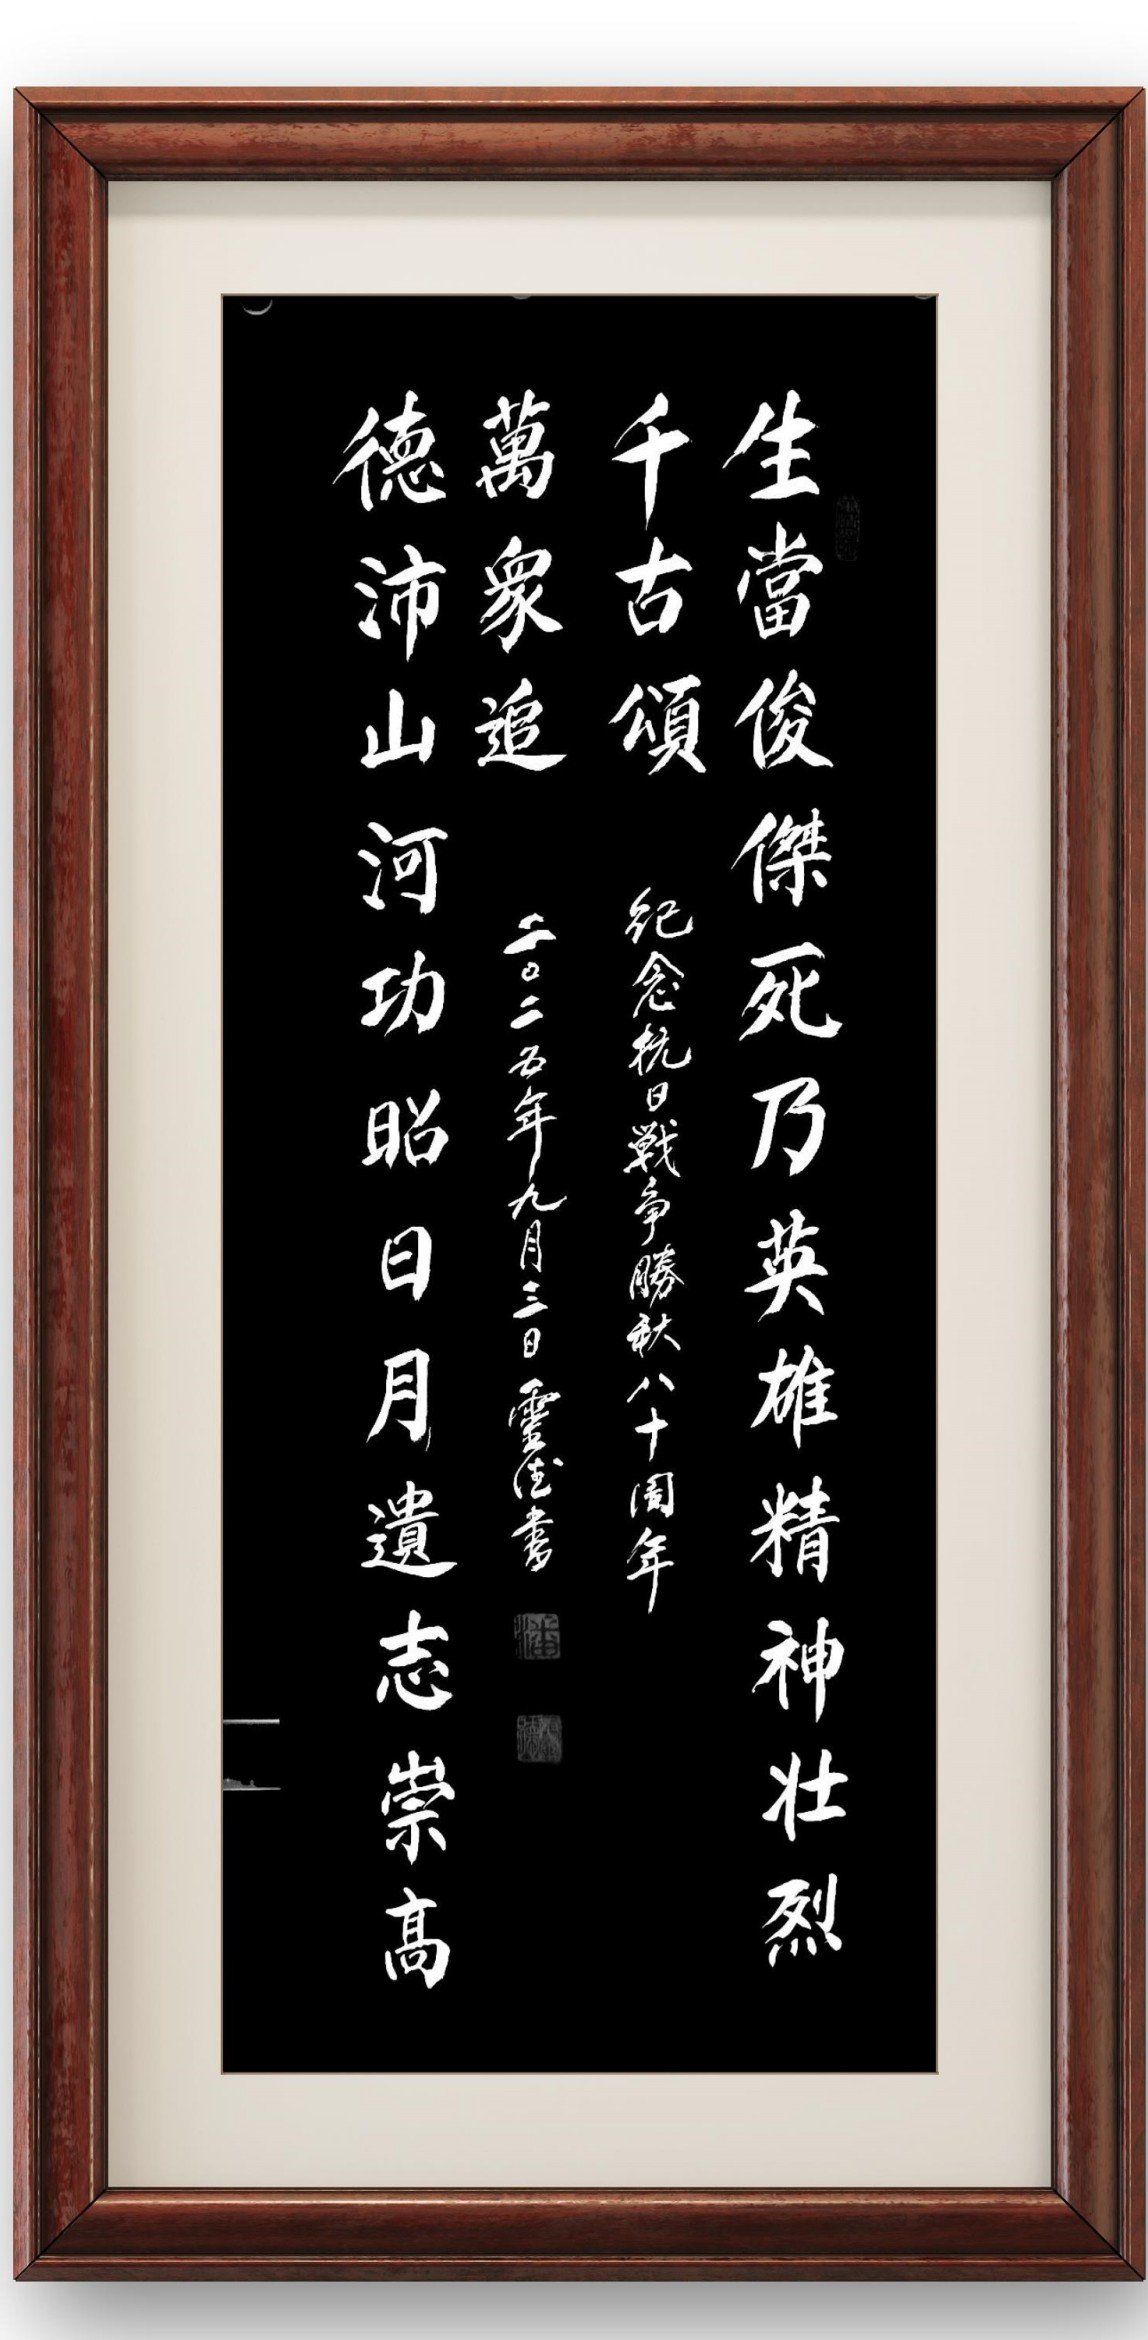 生當俊傑死乃英雄精神壯烈
千古頌
德沛山河功昭日月遺志崇高
萬衆追
紀念抗日戦争勝秋八十周年
二〇二五年九月三日靈德書